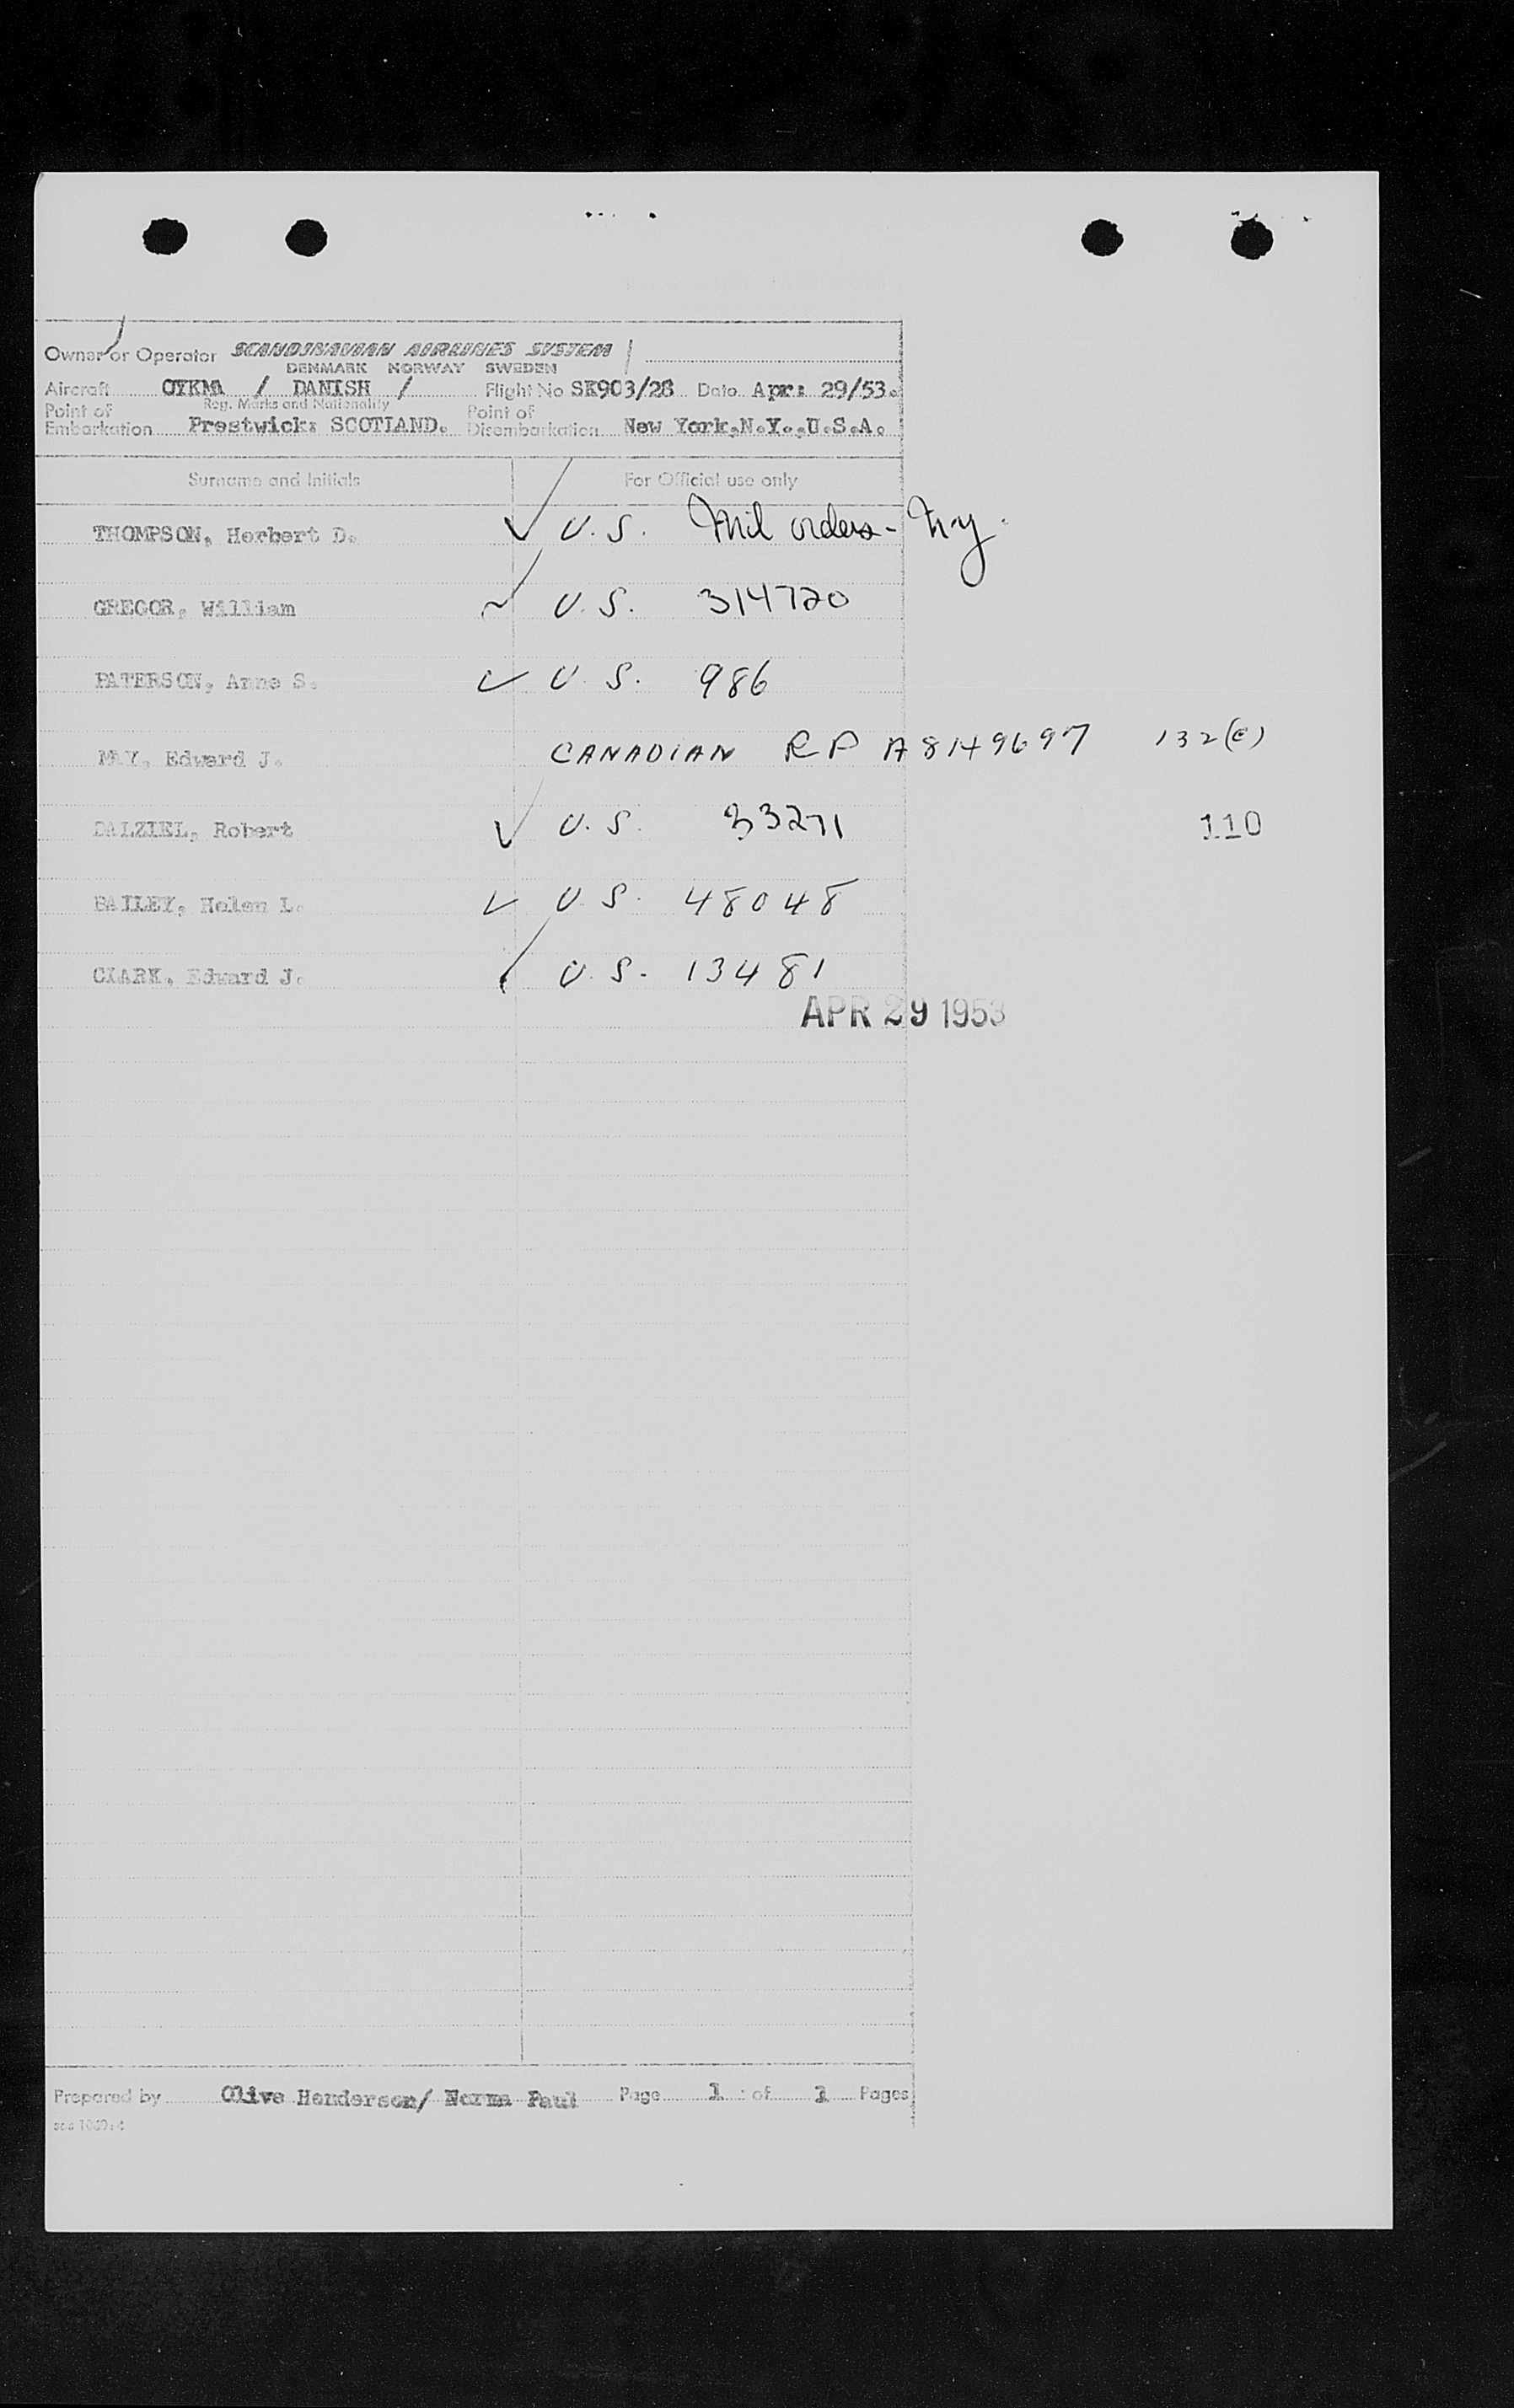 Owner or Operator SCANDINAVIAN AIRLINES SYSTEM
DENMARK NORWAY SWEDEN
Aircraft OYKMA / DANISH / Flight No SK903/28 Date Apr: 29/53.
Reg. Marks and Nationality
Point of Embarkation Prestwick: SCOTLAND. Point of Disembarkation New York,N.Y.,U.S.A.
Surname and Initials For Official use only
THOMPSON, Herbert D. ✓ U.S. Mil orders - N.Y.
GREGOR, William U.S. 314720
PATERSON, Anne S. ✓ U.S. 986
Edward J. CANADIAN RP A8149697 132(e)
DALZIEL, Robert ✓ U.S. 33271 110
BAILEY, Helen L. ✓ U.S. 48048
CLARK, Edward J. ✓ U.S. 13481
APR 29 1953
Prepared by Olive Henderson/ Norma Paul Page 1 of 1 Pages